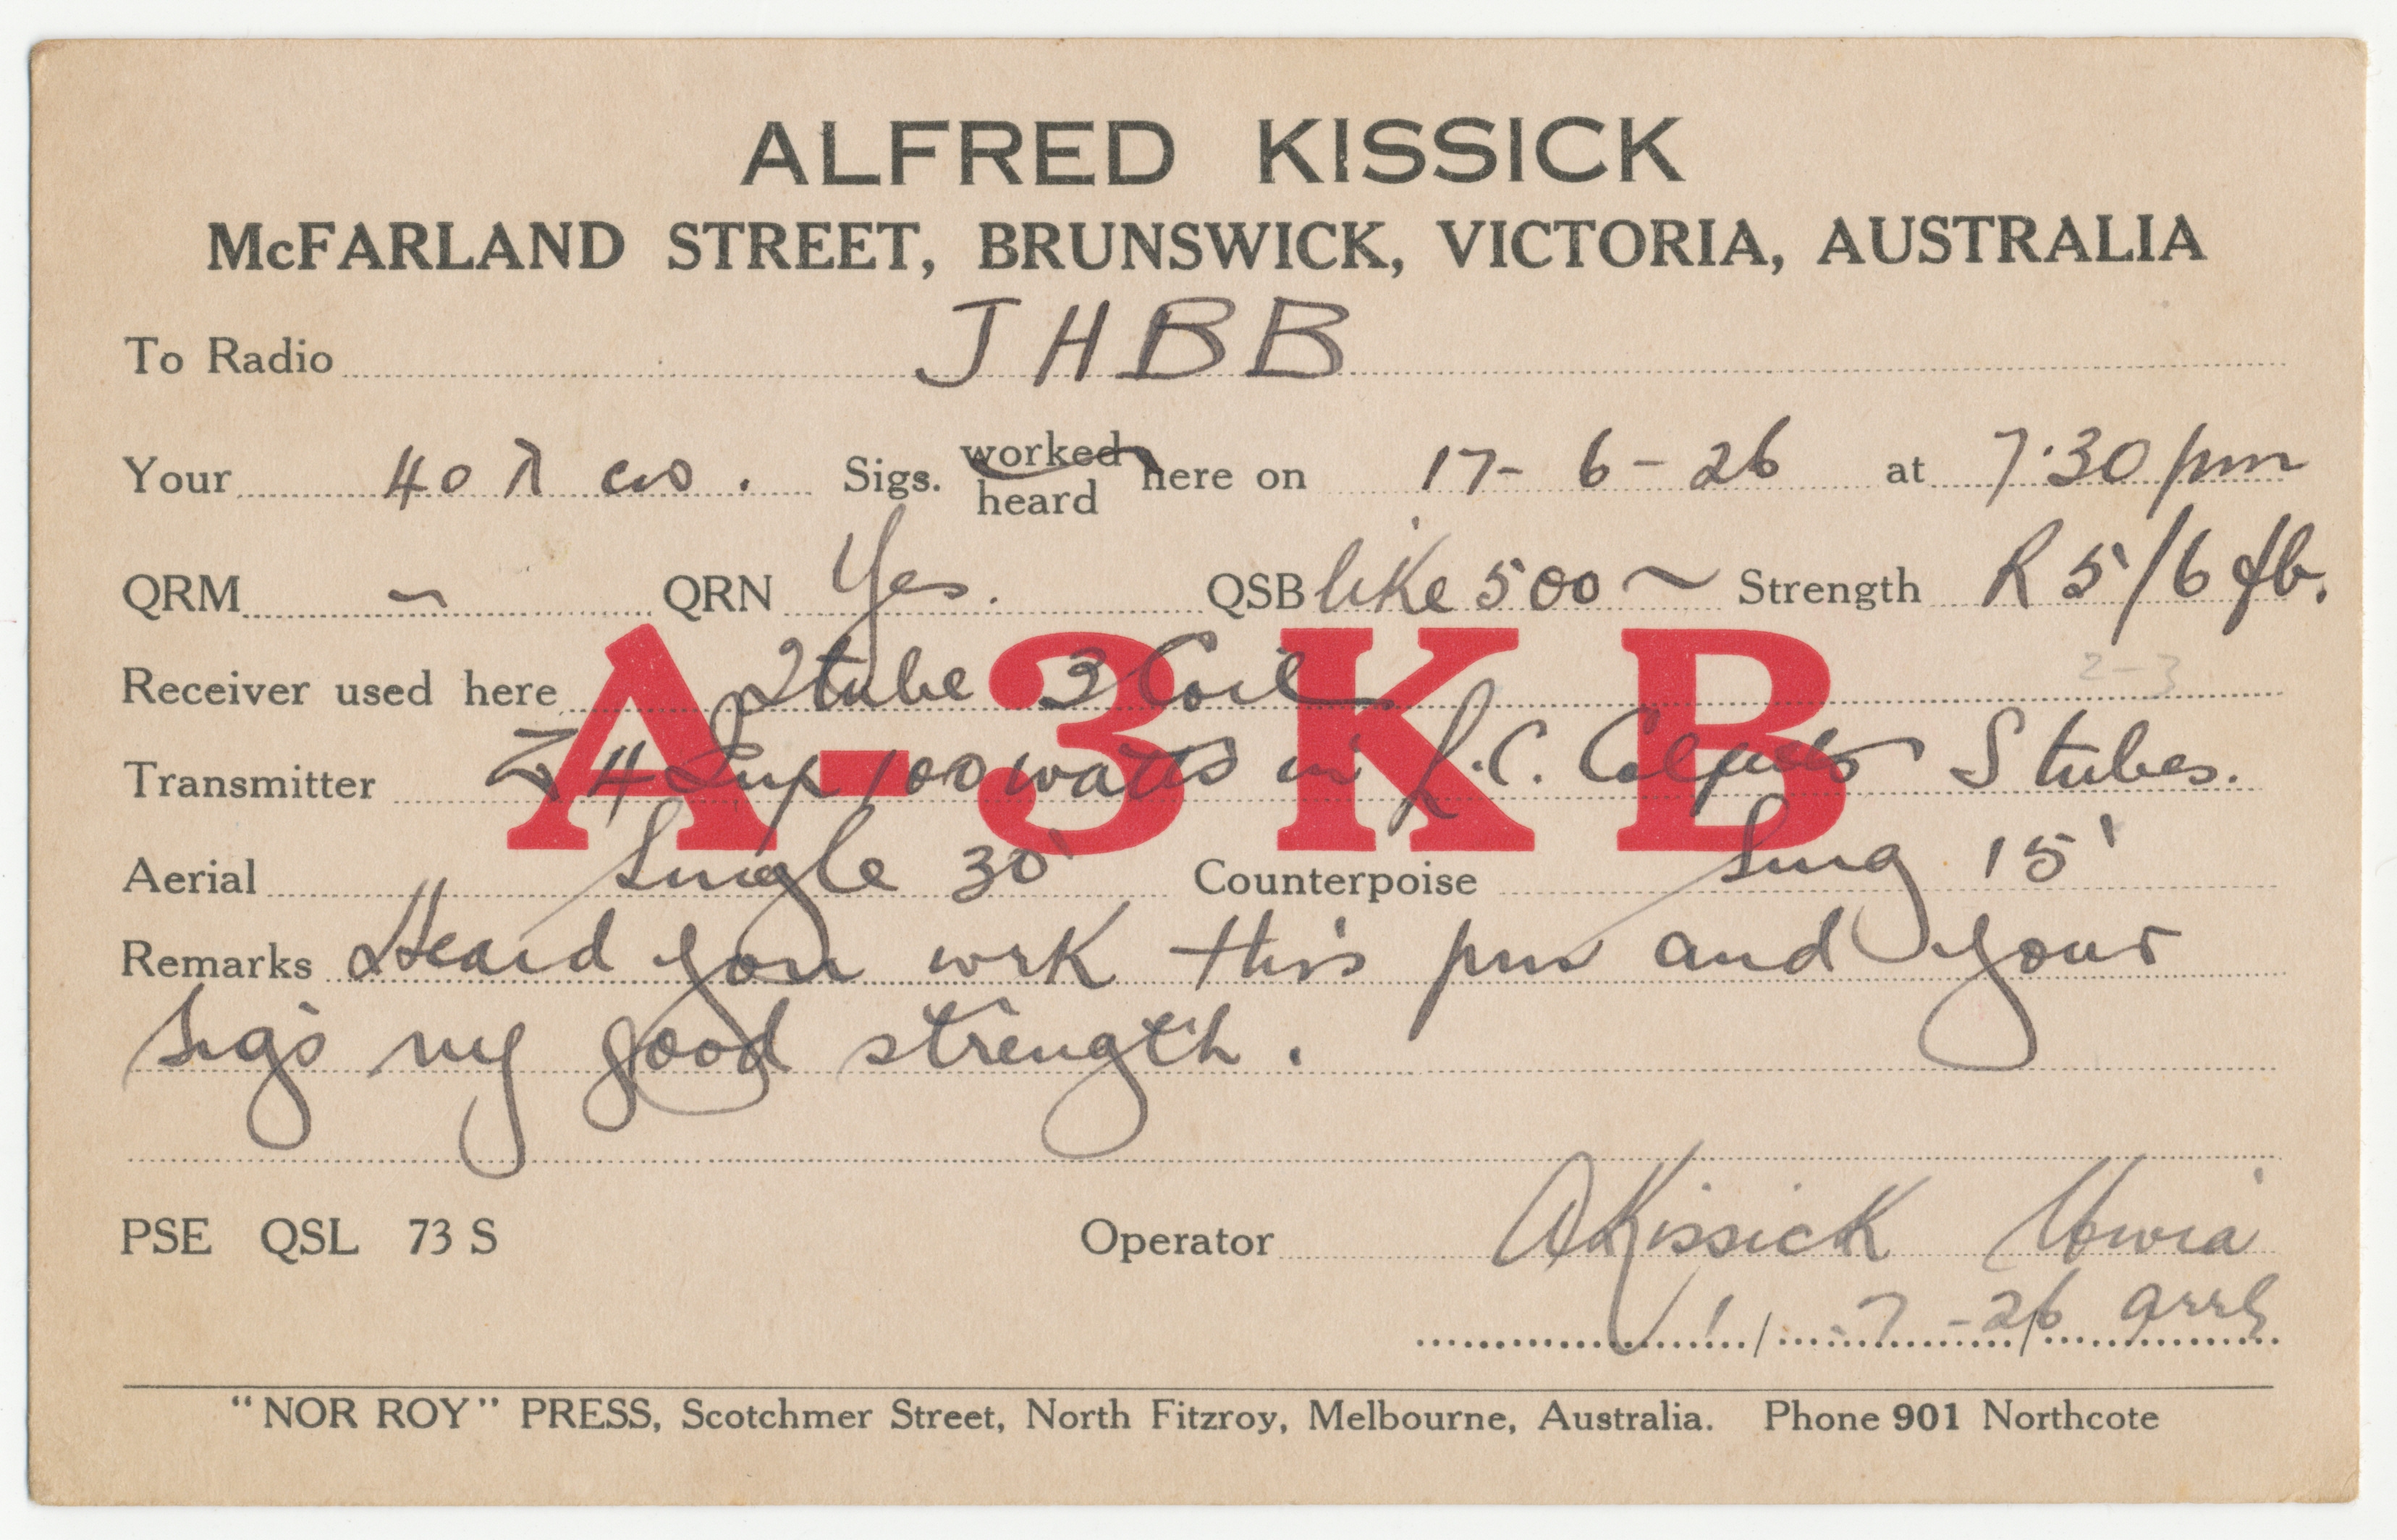 ALFRED KISSICK
McFARLAND STREET, BRUNSWICK, VICTORIA, AUSTRALIA
To Radio JHBB
Your 40 λ cw. Sigs. worked heard here on 17-6-26 at 7.30 pm
QRM – QRN Yes. QSB like 500 ~ Strength R 5/6 fb.
2-3
A-3KB
Receiver used here 2 tube 3 Coil
Transmitter Inp 100 watts in L.C. Colpitts S tubes.
Aerial Single 30' Counterpoise Sing 15'
Remarks Heard you wrk this pm and your
sigs vy good strength.
PSE QSL 73 S Operator AKissick
1/-7-26/ arrl
"NOR ROY" PRESS, Scotchmer Street, North Fitzroy, Melbourne, Australia. Phone 901 Northcote